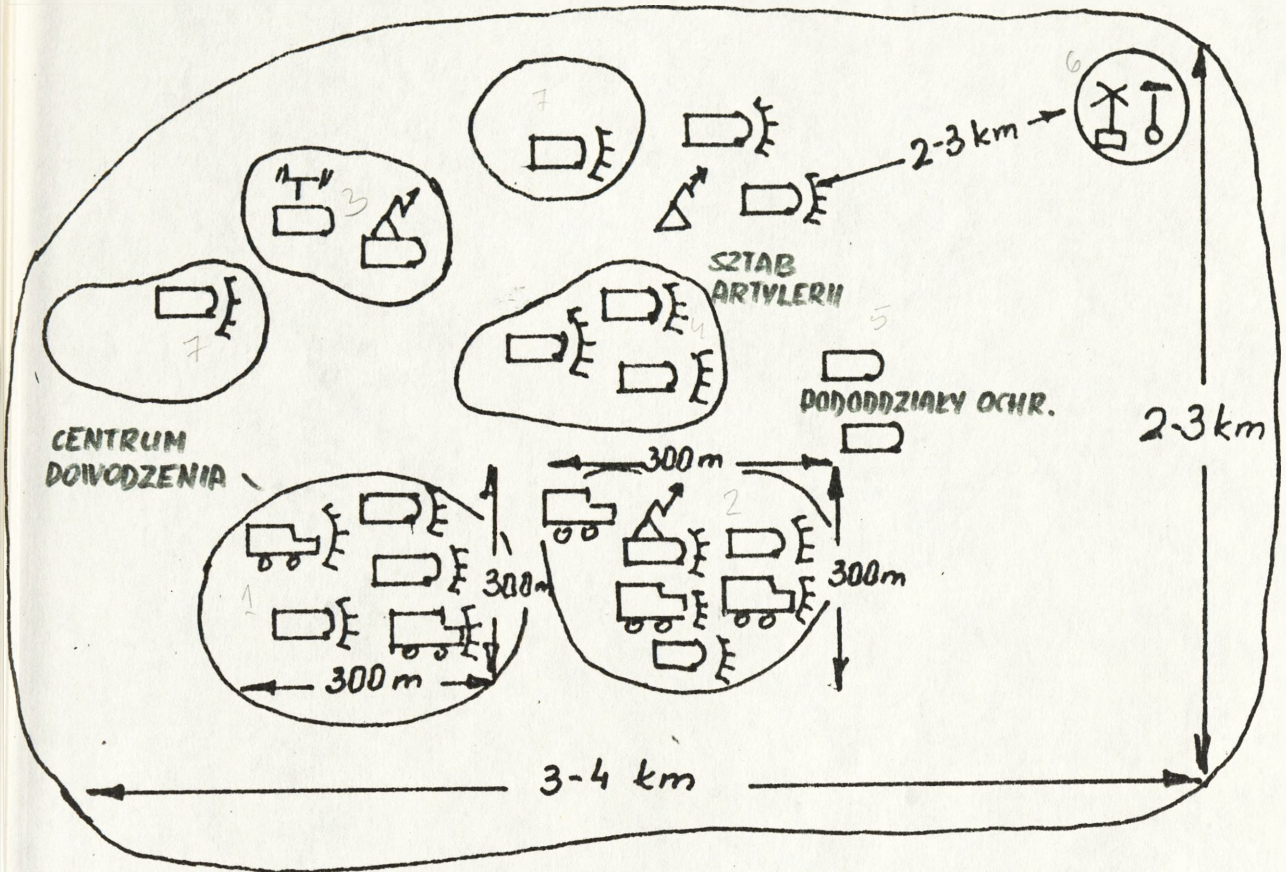 6
7
2-3 km
3
SZTAB
ARTYLERII
7
4
5
PODODDZIAŁY OCHR.
2-3 km
CENTRUM
DOWODZENIA
300 m
2
1
300 m
300 m
300 m
3-4 km